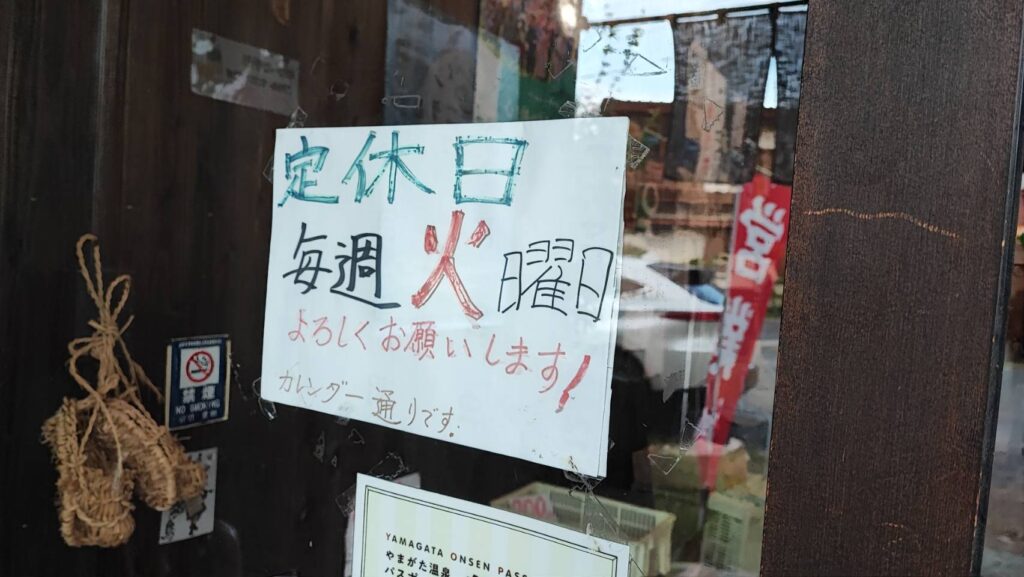 定休日
毎週火曜日
よろしくお願いします!
カレンダー通りです.
禁煙
NO SMOKING
営業
YAMAGATA ONSEN PASS
やまがた温泉
パスポ